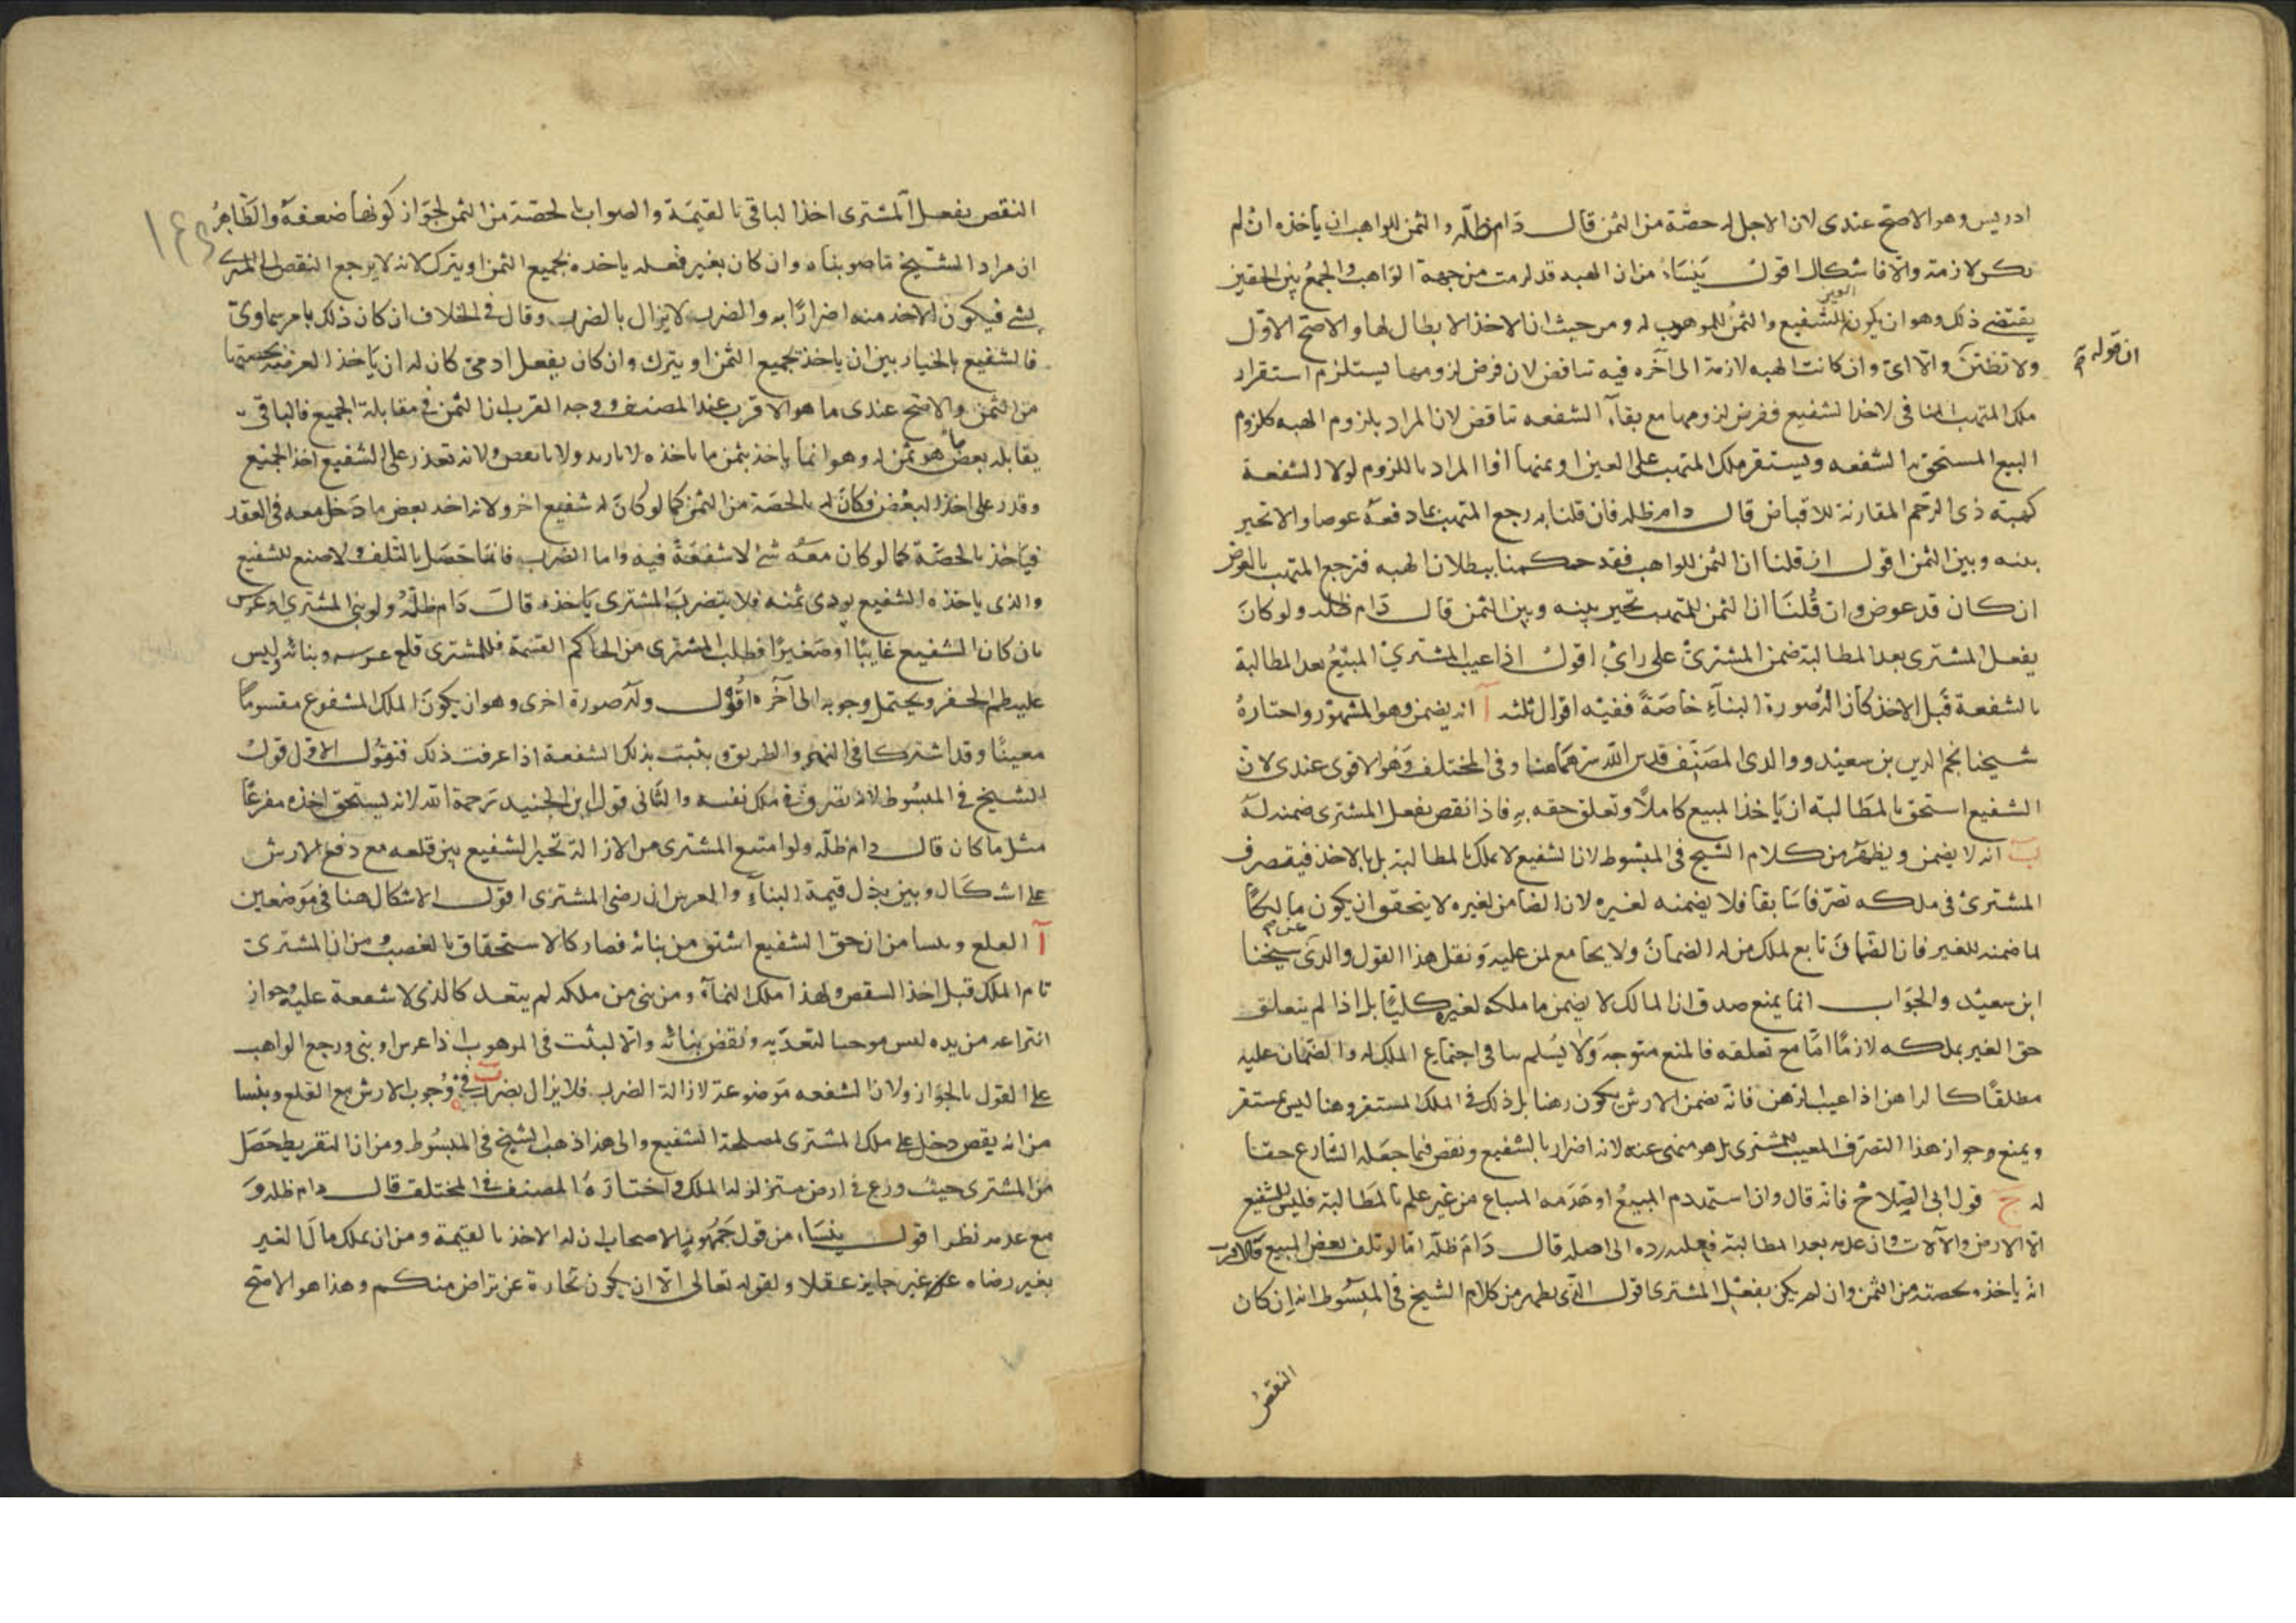 ادريس وهو الاصح عندى لان الاجل له حصّة من الثمن قال دَام ظلّه والثمن للواهب ان يأخذه ان لم
تكن لازمة والّا فاشكال اقول يَنشَأ من ان الهبه قد لزمت من جهة الوَاهب والجمعُ بين الحقين
يقتضى ذلك وهو ان يكون العين للشفيع والثمنُ للموهوب له ومن حيث ان الاخذ الابطال لها والاصحّ الاوّل
ولا تظننّ ان قوله والّا اى وان كانت الهبه لازمة الى آخره فيه تناقض لان فرض لزومها يستلزم استقرار
ملك المتهب المنافى لاخذ الشفيع ففرض لزومها مع بقاء الشفعه تناقض لان المراد بلزوم الهبه كلزوم
البيع المستحق به الشفعه ويستقر ملك المتهب على العين او ثمنها او المراد باللزوم لولا الشفعة
كهبته ذى الرّحم المقارنة للاقباض قال دام ظله فان قلنا به رجع المتهب بما دفعهُ عوضا والا تخير
بينه وبين الثمن اقول ان قلنا ان الثمن للواهب فقد حكمنا ببطلان الهبه فترجع المتهب بالعوض
ان كان قد عوض وان قُلنَا ان الثمن للمتهب تخير بينه وبين الثمن قال دَام ظله ولو كانَ
بفعل المشترى بعد المطالبة ضمن المشترىْ على رائ اقول اذا عيب المشترىْ المبيْعُ بعد المطالبة
بالشفعة قَبل الاخذ كان الصُورة البنآءِ خاصَةً ففيْه اقوال ثلثه آ انه يضمن وهو المشهوْر واختارهُ
شيخنا نجم الدين بن سعيْد ووالدى المصَنّف قدس اللّه سرّهمَا هنا وفى المختلف وَهُو الاقوى عندى لان
الشفيع استحق بالمطَالبة ان يَاخذ المبيع كاملًا وتعلق حقه بهِ فاذا نقص بفعل المشترى ضمنه لهَ
بَ انه لا يضمن ويظهَر من كلام الشيخ فى المبسُوط لان الشفيع لا يملك بالمطالبة بل بالاخذ فيتصرف
المشترىْ فى ملكه تصَرّفا سَابقا فلا يضمنه لغيره لان الضامن لغيره لا يتحقق ان يكون مالِكًا
لما ضمنه للغير فان الضّمَانَ تابع لملك من له الضمانُ ولا يجامع لمن عليه وَنقل هذا القول والدىَ عن شيخنا
ابن سعيْد والجوَاب انما يمنع صدق ان المالك لا يضمن ما ملكه لغيره كليًّا بل اذا لم يتعلق
حق الغير بملكه لازمًا امّا مع تعلقه فالمنع متوجه وَلا يُسلم تنافى اجتماع الملك له والضمان عليه
مطلقًا كالراهن اذا عيب الرّهن فانّه يضمن الارش يكون رهنا بل ذلك فى الملك المستقر وهنا ليس بمستقر
ويمنع وجواز هذا التصَرّف المعيب للمشترى بل هو منهى عنه لانه اضرار بالشفيع ونقص فيما جعَله الشارع حقّا
له حَ قول ابى الصّلاحْ فانّه قال وان استهدم المبيعُ او هَدَمه المبتاع من غير علم بالمطَالبة فليْس للشفيع
الّا الارض والآلات وان هدمه بعد المطالبة فعليه رده الى اصله قال دَامَ ظلّه امّا لو تلف بعض المبيع فالاقرب
انّه ياخذه بحصته من الثمن وان لم يكن بفعْل المشترى اقول الّذى يظهر من كلام الشيخ فى المبسُوط انه ان كان
النقصُ
النقص بفعل المشترى اخذ الباقى بالقيمَة والصواب بالحصّة من الثمن لجوَاز كونها ضعفهُ والظَاهرُ
ان مراد الشيخ ما صوبناه وان كان بغير فعله ياخده بجميع الثمن او يترك لانه لا يرجع النقص الى المشترى
بشئ فيكون الاخذ منه اضرارًا به والضرر لا يزال بالضرر وقال فى الخلاف ان كان ذلك بامر سماوىّ
فالشفيع بالخيار بين ان ياخذ بجميع الثمن او يترك وان كان بفعل ادمىّ كان له ان يَاخذ العرصة بحصتها
من الثمن والاصح عندى ما هو الاقرب عند المصنف ووجه القرب ان الثمن فى مقابلة الجميع فالباقى
يقابله بعض ما هو ثمن له وهو انما ياخذ بثمن ما ياخذه لا بازيد ولا بانقص ولانه تعذر على الشفيع اخذ الجميع
وقدر على اخذ البعْض فكانَ له بالحصّة من الثمن كما لو كانَ له شفيع اخر ولانه اخذ بعض ما دَخل معه فى العقد
فيَاخذ بالحصّة كما لو كان معَهُ شئ لا شفعَةً فيه واما الضرر فانما حَصَل بالتلف ولا صنع للشفيع
والذى ياخذه الشفيع يودى ثمنه فلا يتضررَ المشترى يَاخذه قالَ دَام ظلّهُ ولو بنى المشترىْ او غرس
بان كان الشفيع غايبًا او صَغيرًا فطلب المشترى من الحاكم القسَمة فللمشترى قلع غرسه وبنائه وليس
عليه طم الحفر ويحتمل وجوبه الى آخره اقُوْل ولَهُ صورة اخرى وهو ان يكونَ الملك المشفوع مقسومًا
معينًا وقد اشتركا فى النهر والطريق ويثبت بذلك الشفعة اذا عرفت ذلك فنقوُل الاول قولُ
الشيخ فى المبسُوط لانه تصَرف فى ملك نفسه والثانى قول ابن الجنيد رَحمهُ الله لانه يستحق اخذه مفرغًا
مثل ما كان قال دام ظلّه ولو امتنع المشترى من الازالة تخير الشفيع بين قلعه مع دفع الارش
على اشكَال وبين بذل قيمة البناءِ والغرس ان رضى المشترى اقول الاشكال هنا فى مَوضعين
آ القلع وينشا من ان حق الشفيع اسبق من بنائه فصار كالاستحقاق بالغصب ومن ان المشترى
تام الملك قبل اخذ الشقص ولهذا ملك النمآءَ ومن بنى من ملكه لم يتعد كالذى لا شفعة عليه وجواز
انتزاعه من يده ليس موجبا لتعدّيه ونقض بنائه والّا لثبت فى الموهوب اذا غرس او بنى ورجع الواهب
على القول بالجوَاز ولان الشفعه مَوضوعة لازالة الضرر فلا يزال بضرر بَ فى وُجوب الارش مع القلع وينشا
من انه نقص دخل على ملك المشترى لمصلحة الشفيع والى هذا ذهب الشيخ فى المبسُوط ومن ان التفريط حَصَل
منَ المشترى حيث زرع فى ارض متزلزلة الملك واختارَهُ المصنف فى المختلف قال دام ظله وَ
مع عدمه نظر اقول ينشَا، من قول جَمهُور الاصحاب ان له الاخذ بالقيمة ومن ان تملك مال الغير
بغير رضاه غير جايز عقلا ولقوله تعالى الّا ان يكون تجارة عن تراض منكم وهذا هو الاصَح